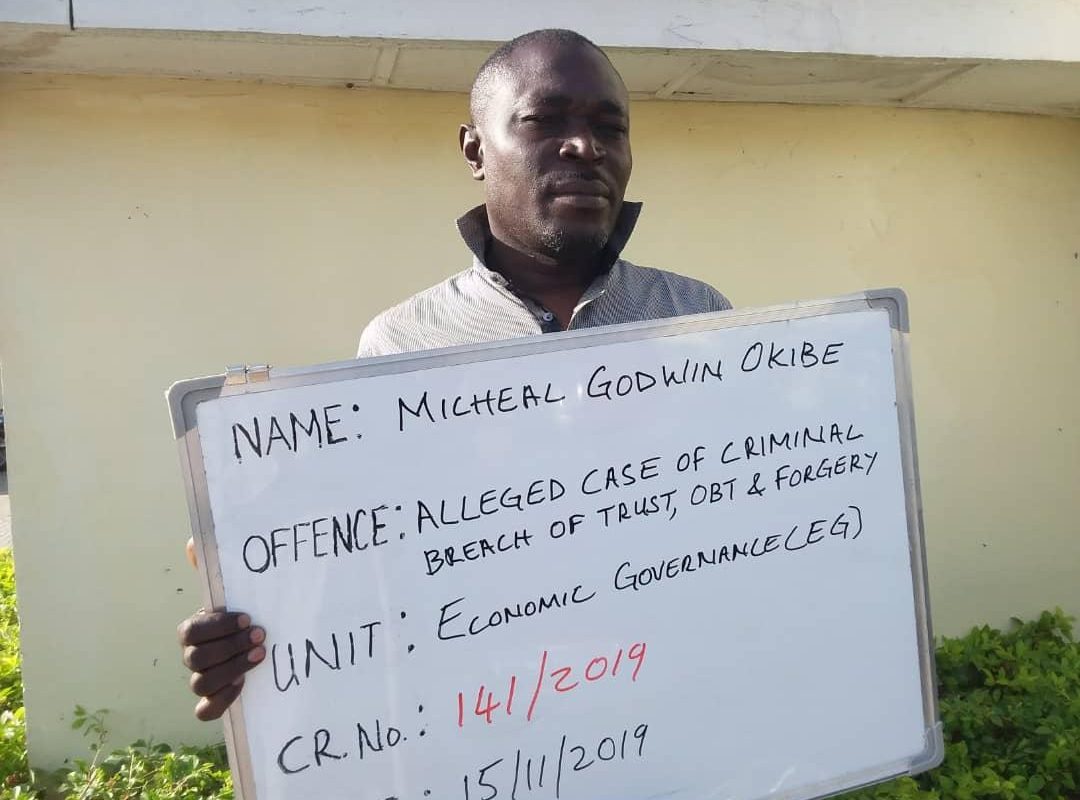 NAME: MICHEAL GODWIN OKIBE
OFFENCE: ALLEGED CASE OF CRIMINAL
BREACH OF TRUST, OBT & FORGERY
UNIT: ECONOMIC GOVERNANCE(EG)
CR. No.: 141/2019
: 15/11/2019